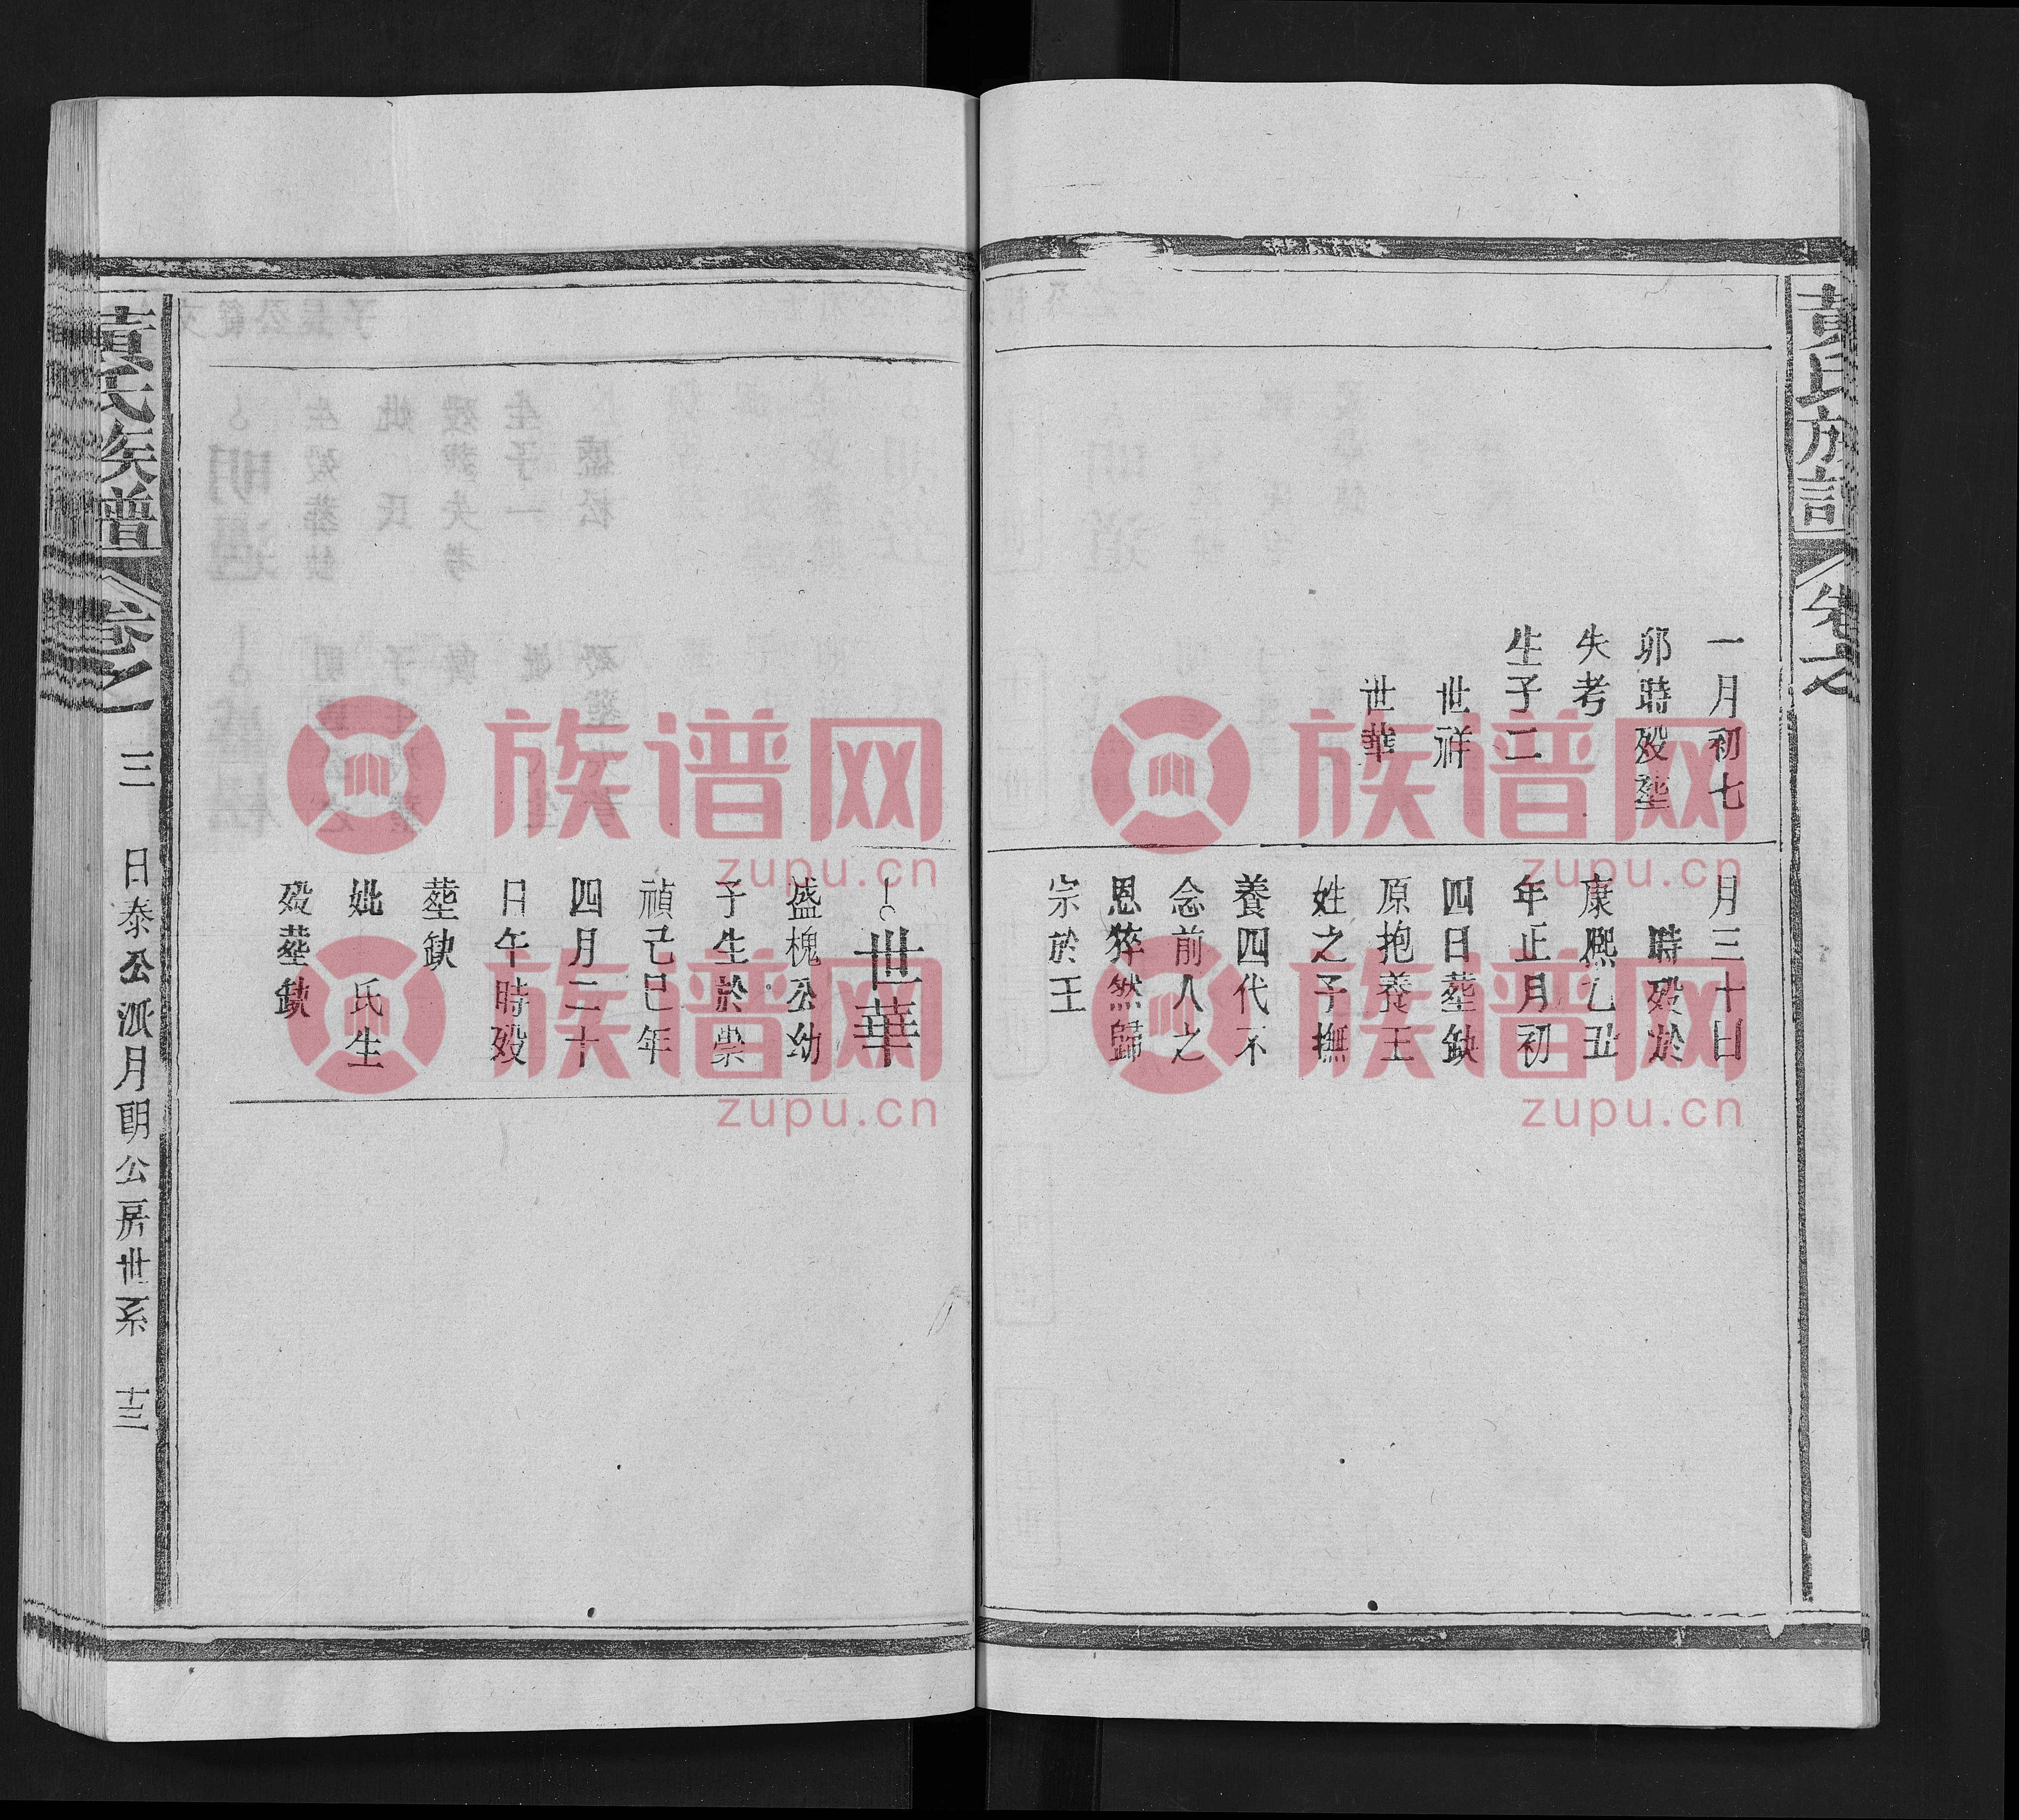 黃氏族譜
卷之
一月初七
卯時歿塟
失考
生子二
世祥
世華
月三十日
時歿於
康熙乙丑
年正月初
四日塟缺
原抱養王
姓之子撫
養四代不
念前人之
恩猝然歸
宗於王
世華
盛槐公幼
子生於崇
禎己巳年
四月二十
日午時歿
塟缺
妣 氏生
歿塟缺
黃氏族譜
卷之一
三
日泰公派月朗公房世系
十三
族谱网
zupu.cn
族谱网
zupu.cn
族谱网
zupu.cn
族谱网
zupu.cn